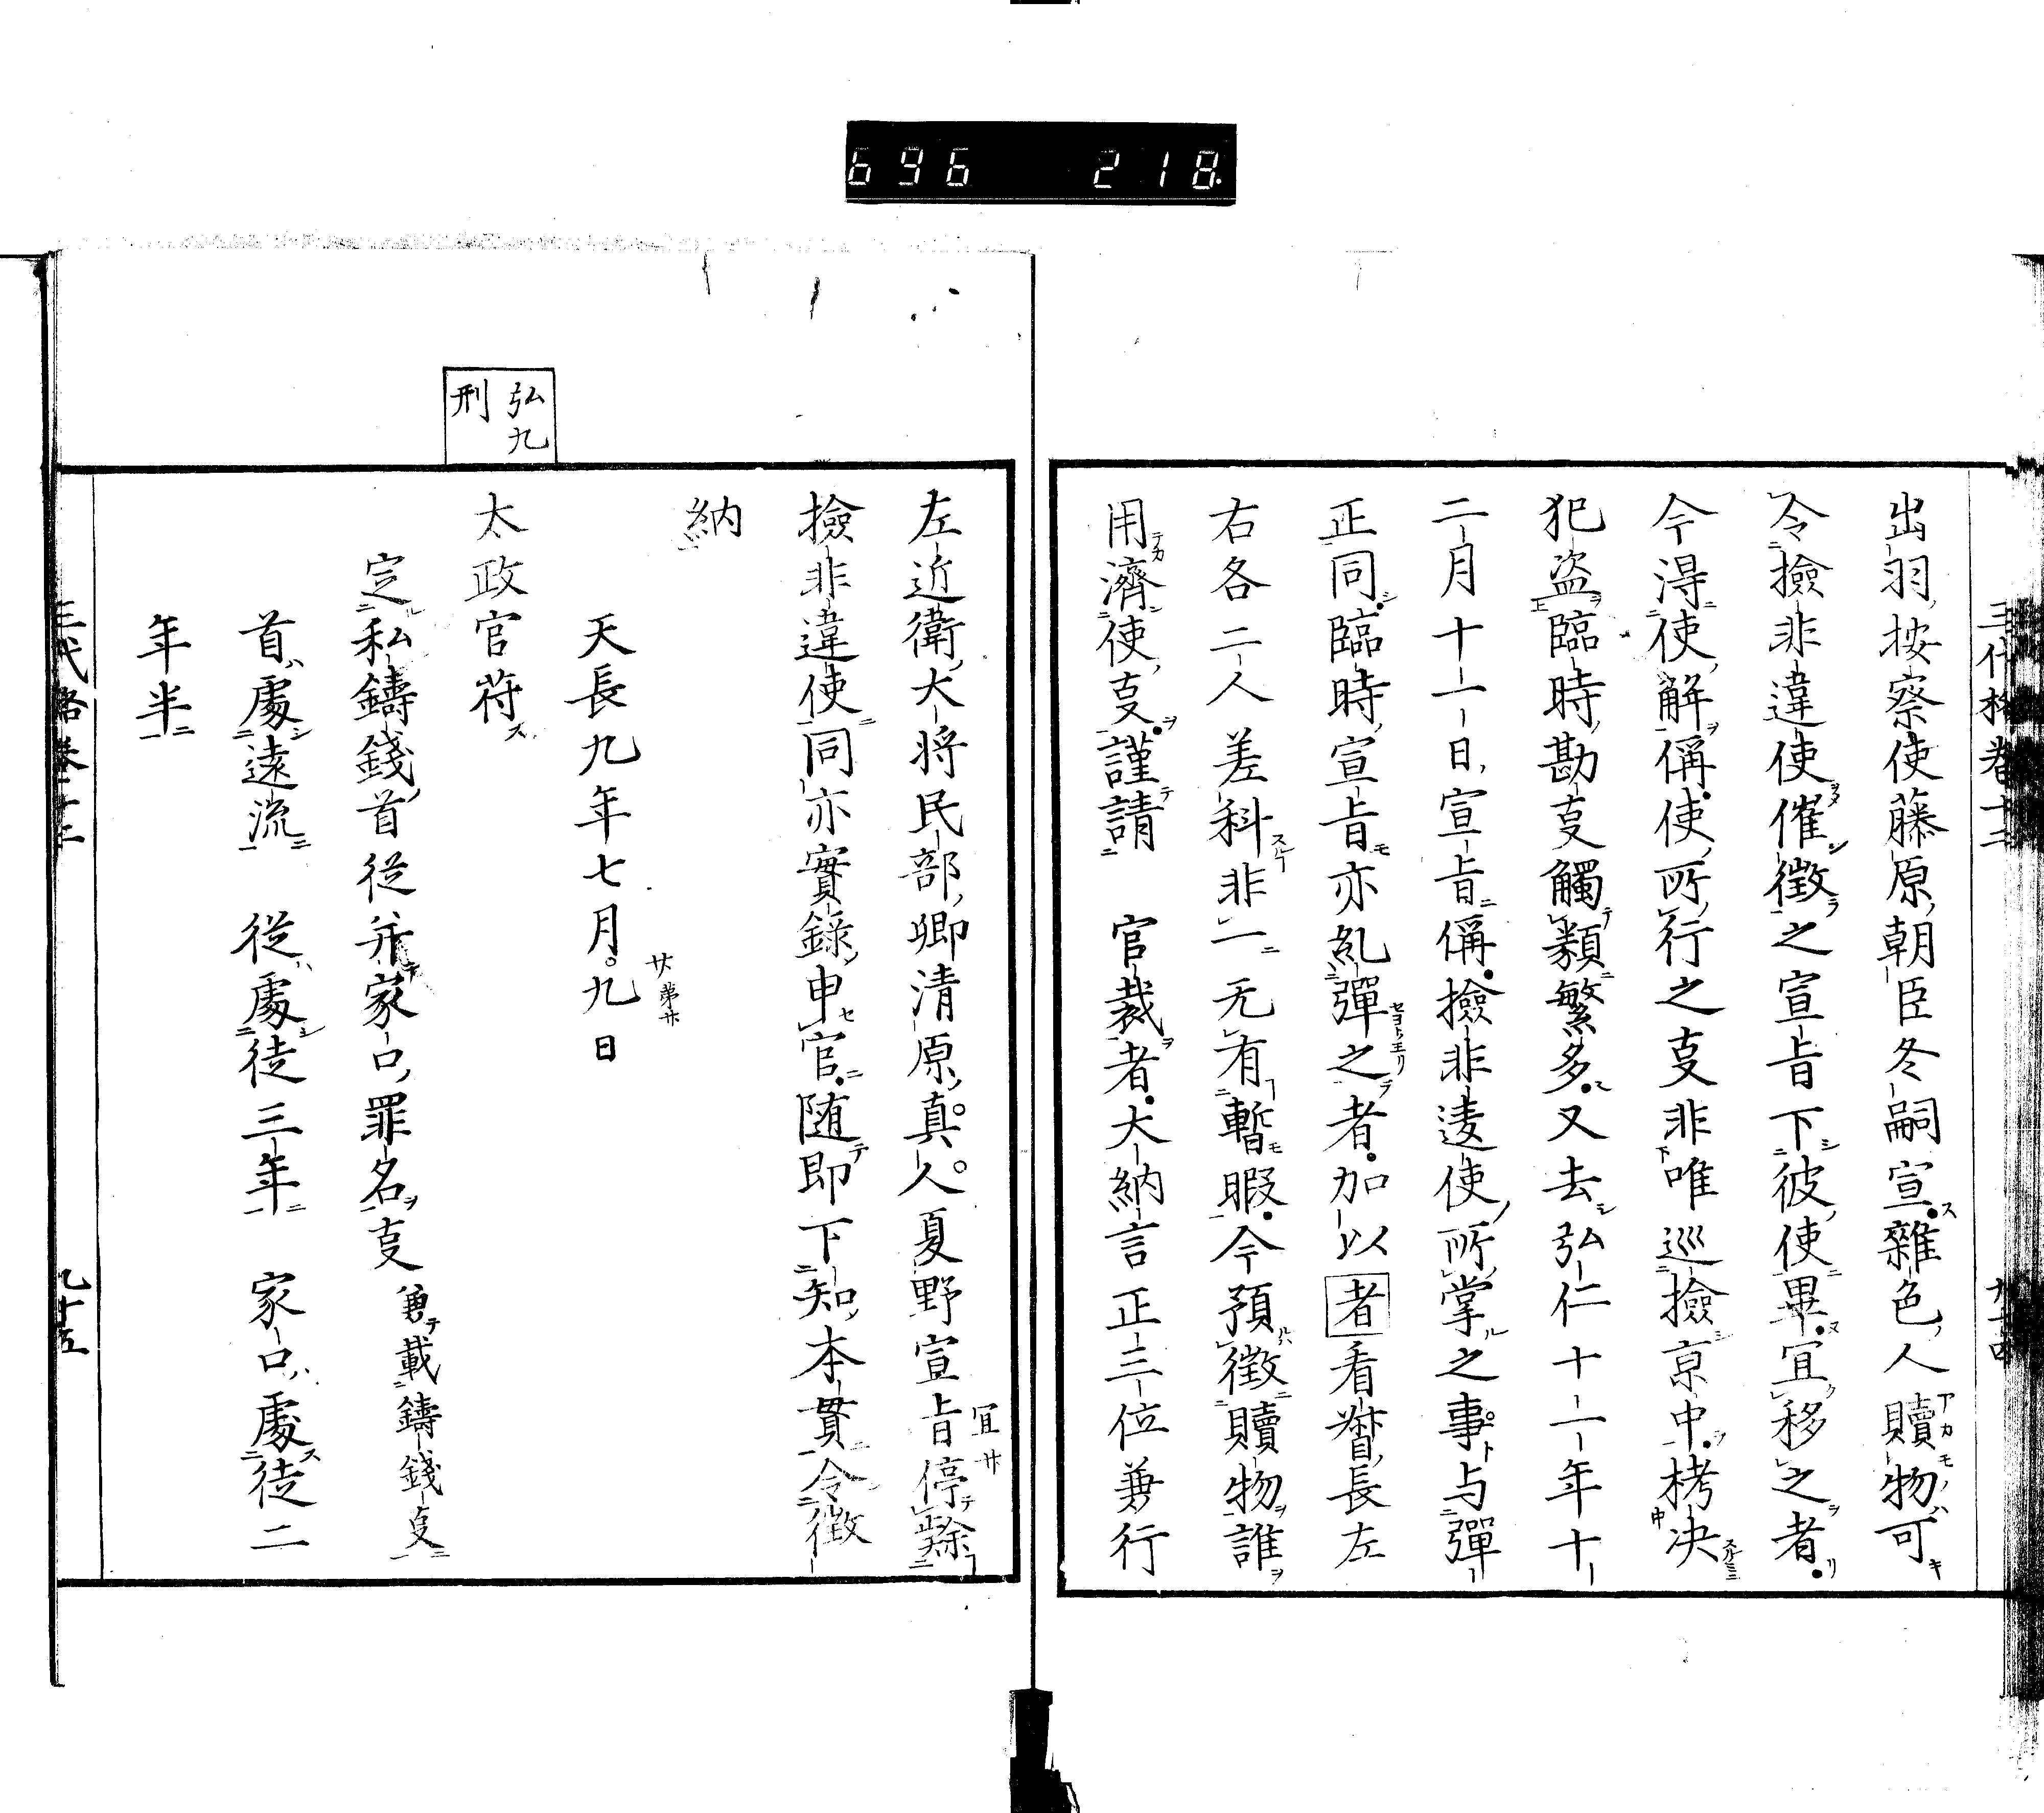 696 218
三代格卷十二
出羽按察使藤原朝臣冬嗣宣雜色人贖物可
令撿非違使催徴之宣旨下彼使畢宜移之者
今得使解偁使所行之㕝非唯巡撿京中栲决
犯盗臨時勘㕝觸類繁多又去弘仁十一年十
二月十一日宣旨偁撿非違使所掌之事与彈
正同臨時宣旨亦糺彈之者加以者看督長左
右各二人差科非一无有暫暇今預徴贖物誰
用濟使㕝謹請　官裁者大納言正三位兼行
左近衛大将民部卿清原真人夏野宣旨停
撿非違使同亦實録申官随即下知本貫令徴
納
天長九年七月九日
弘九
刑
太政官符
定私鑄錢首從并家口罪名㕝 兼載鑄錢㕝
首處遠流　從處徒三年　家口處徒二
年半
三代格卷十二　九十五